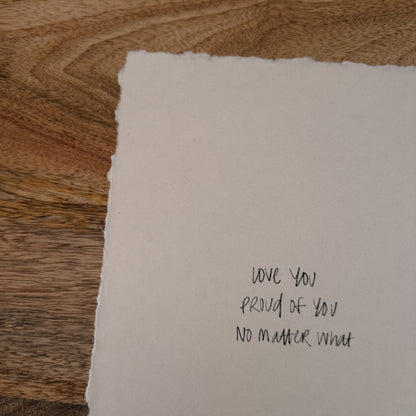 Love You
PROUD OF YOU
NO MATTER WHAT